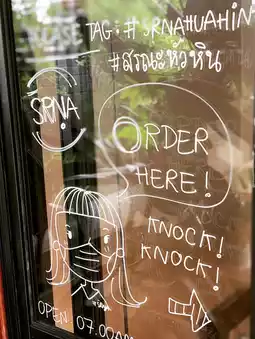 TAG : # SRNAHUAHIN
#สรณะหัวหิน
SRNA
ORDER
HERE!
KNOCK!
KNOCK!
OPEN 07.00AM